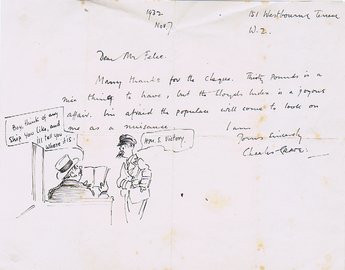 1932
Nov. 7
151 Westbourne Terrace
W.2.
Dear Mr Felce.
Many thanks for the cheque. Thirty pounds is a
nice thing to have, but the Lloyds Index is a joyous
affair. I'm afraid the populace will come to look on
me as a nuisance.
I am
Yours sincerely
Charles Grave.
Boy, think of any
Ship you like, and
I'll tell you
where 'tis.
H.M.S. Victory.